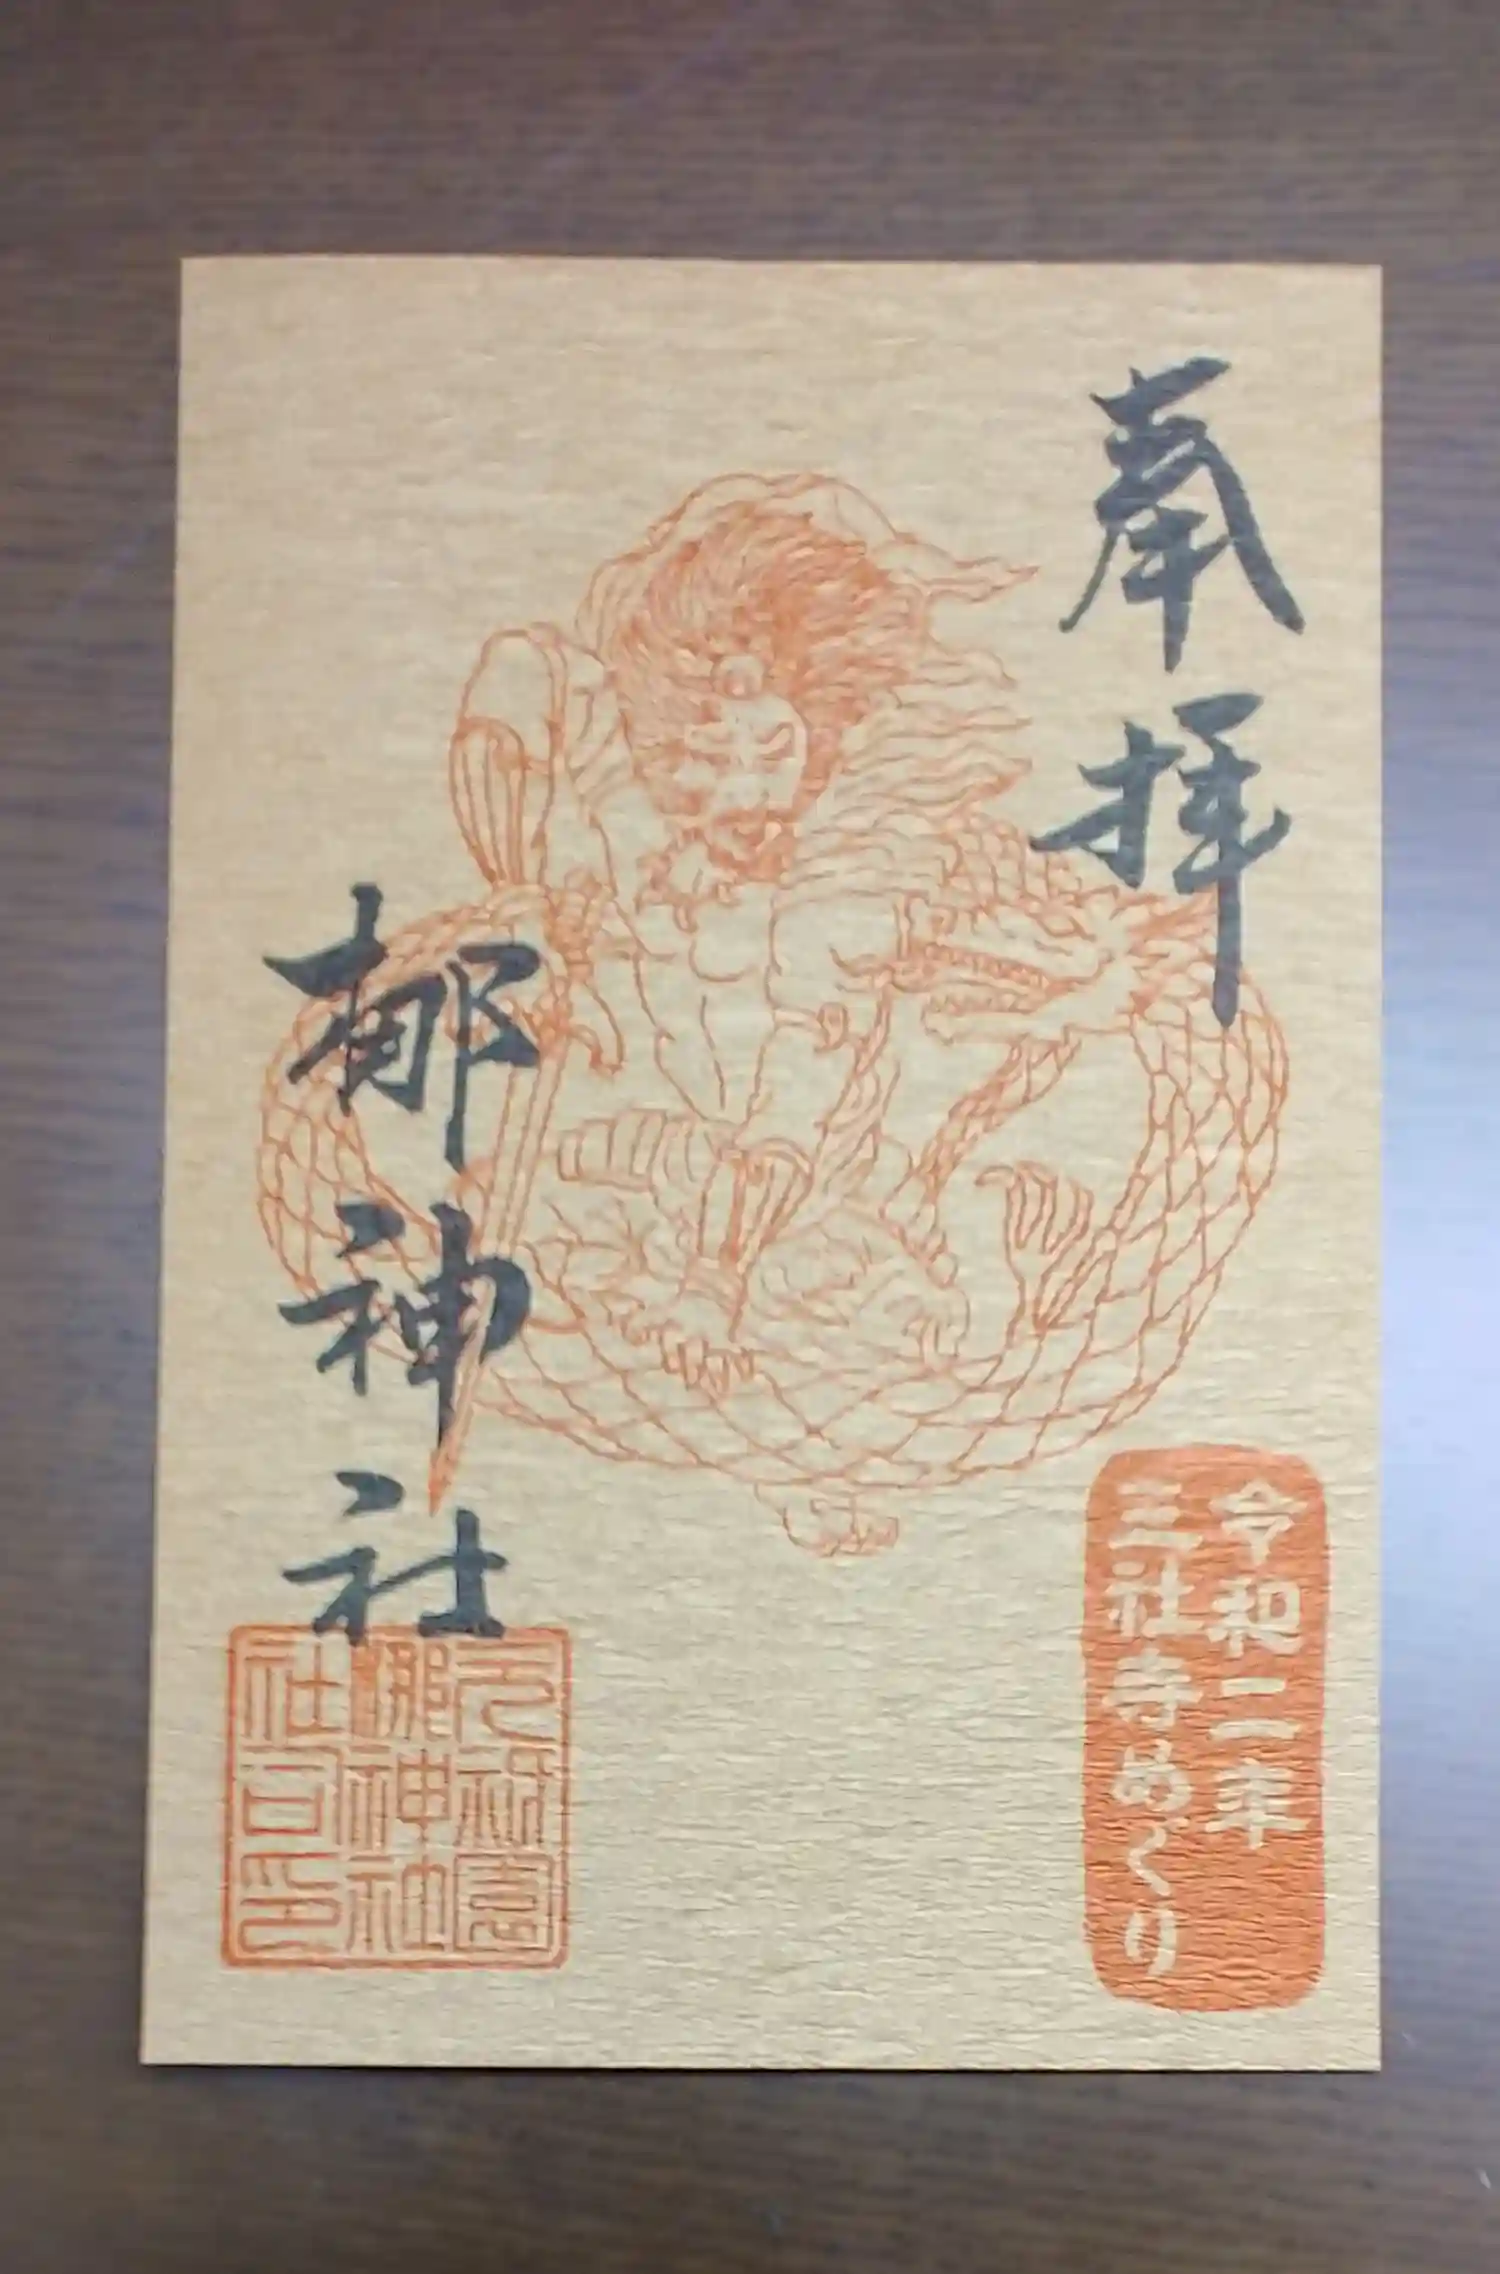 奉拝
梛神社
令和二年
三社寺めぐり
元祇園
梛神社
社司印